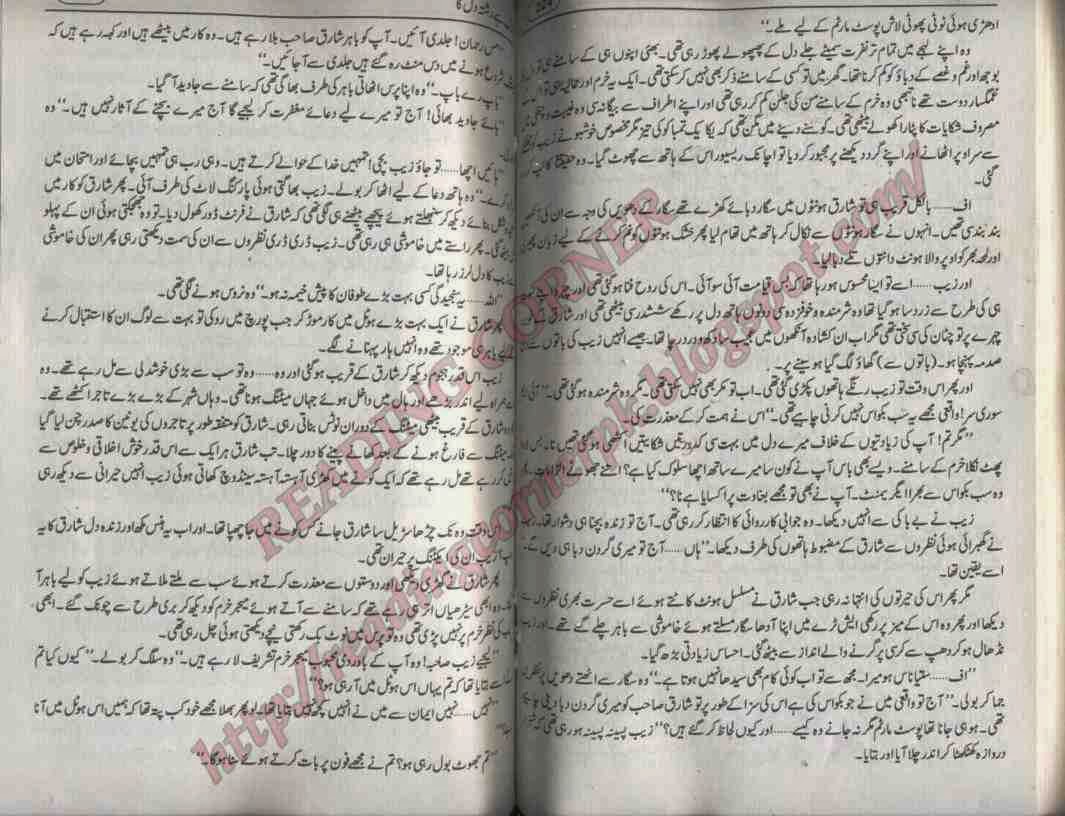 ادھڑی ہوئی ٹوٹی پھوٹی لاش پوسٹ مارٹم کے لیے ملے۔"
وہ اپنے لہجے میں تمام تر نفرت سمیٹے جلے دل کے پھپھولے پھوڑ رہی تھی۔ بھئی اپنوں ہی کے سامنے
بوجھ اور غم و غصے کے دباؤ کو کم کرنا تھا۔ گھر میں تو کسی کے سامنے ذکر بھی نہیں کر سکتی تھی۔ ایک یہ خرم اور
غمگسار دوست تھے نا تبھی وہ خرم کے سامنے من کی جلن کم کر رہی تھی اور اپنے اطراف سے بیگانہ سی وہ غیبت
مصروف شکایات کا پٹارا کھولے بیٹھی تھی۔ کوسنے دینے میں مگن تھی کہ یکا یک تمباکو کی تیز مگر مخصوص خوشبو نے زیب
سے سر اوپر اٹھانے اور اپنے گرد دیکھنے پر مجبور کر دیا تو اچانک ریسیور اس کے ہاتھ سے چھوٹ گیا۔ وہ حقیقتاً کانپ
گئی۔
اف...... بالکل قریب ہی تو شارق ہونٹوں میں سگار دبائے کھڑے تھے سگار کے دھوئیں کی وجہ سے ان کی
بند بند سی تھیں۔ انہوں نے سگار ہونٹوں سے نکال کر ہاتھ میں تھام لیا پھر خشک ہونٹوں کو نم کرنے کے لیے زبان پھیری
اور لحہ بھر کو اوپر والا ہونٹ دانتوں تلے دبا لیا۔
اور زیب...... اسے تو ایسا محسوس ہو رہا تھا کہ بس قیامت آئی سو آئی۔ اس کی روح فنا ہو گئی تھی اور چہرہ اپنے
ہی کی طرح سے زرد سا ہو گیا تھا وہ شرمندہ و خوفزدہ سی دونوں ہاتھ دل پر رکھے ششدر سی بیٹھی تھی اور شارق کے
چہرے پر تو چٹان کی سی سختی تھی مگر اب ان کشادہ آنکھوں میں عجیب سا دکھ و درد رچا تھا۔ جیسے انہیں زیب کی باتوں سے
صدمہ پہنچا ہو۔ (باتوں سے) گھاؤ لگ گیا ہو سینے پر۔
اور پھر اس وقت تو زیب رنگے ہاتھوں پکڑی گئی تھی۔ اب تو مکر بھی نہیں سکتی تھی۔ مگر وہ شرمندہ ہو گئی تھی۔ "آئی ایم
سوری سر! واقعی مجھے یہ سب بکواس نہیں کرنی چاہیے تھی۔" اس نے ہمت کر کے معذرت کی۔
"مگر تم! آپ کی زیادتیوں کے خلاف میرے دل میں بہت سی کدورتیں شکایتیں اکٹھی ہو گئی تھیں نا۔ بس
پھٹ نکلا خرم کے سامنے۔ ویسے بھی باس آپ نے کون سا میرے ساتھ اچھا سلوک کیا ہے؟ اتنے جھوٹے الزامات
وہ سب بکواس سے بھرا ایگریمنٹ۔ آپ نے بھی تو مجھے بغاوت پر اکسایا ہے نا؟"
زیب نے بے باکی سے انہیں دیکھا۔ وہ جوابی کارروائی کا انتظار کر رہی تھی۔ آج تو زندہ بچنا ہی دشوار تھا۔
نے گھبرائی ہوئی نظروں سے شارق کے مضبوط ہاتھوں کی طرف دیکھا۔ "ہاں...... آج تو میری گردن دبا ہی دیں گے۔
اسے یقین تھا۔
مگر پھر اس کی حیرتوں کی انتہا نہ رہی جب شارق نے مسلسل ہونٹ کاٹتے ہوئے اسے حسرت بھری نظروں سے
دیکھا اور پھر وہ اس کے میز پر رکھی ایش ٹرے میں اپنا آدھا سگار مسلتے ہوئے خاموشی سے باہر چلے گئے تھے۔ اور زیب
نڈھال ہو کر دھپ سے کرسی پر گرنے والے انداز سے بیٹھ گئی۔ احساس زیادتی بڑھ گیا۔
"اف...... ستیاناس ہو میرا۔ مجھ سے تو اب کوئی کام بھی سیدھا نہیں ہوتا ہے۔" وہ سگار سے اٹھتے دھوئیں پر نظریں
جما کر بولی۔ "آج تو واقعی میں نے جو بکواس کی ہے اس کی سزا کے طور پر تو شارق صاحب کو میری گردن دبا دینی چاہیے
تھی۔ ہو ہی جانا تھا پوسٹ مارٹم مگر نہ جانے وہ کیسے...... اور کیوں لحاظ کر گئے ہیں؟" زیب پسینہ پسینہ ہو رہی تھی کہ
دروازہ کھٹکھٹا کر اندر چلا آیا اور بتایا۔
رشتہ دل کا
"مس رحمان! جلدی آئیں۔ آپ کو باہر شارق صاحب بلا رہے ہیں۔ وہ کار میں بیٹھے ہیں اور کہہ رہے ہیں کہ
شروع ہونے میں دس منٹ رہ گئے ہیں جلدی سے آ جائیں۔"
"باپ رے باپ۔" وہ اپنا پرس اٹھاتی باہر کی طرف بھاگی تھی کہ سامنے سے جاوید آ گیا۔
"ہائے جاوید بھائی! آج تو میرے لیے دعائے مغفرت کر لیجیے گا آج میرے بچنے کے آثار نہیں ہیں۔" وہ
"ہائیں اچھا...... تو جاؤ زیب بچی! تمہیں خدا کے حوالے کرتے ہیں۔ وہی رب ہی تمہیں بچائے اور امتحان میں
کرے۔" وہ ہاتھ دعا کے لیے اٹھا کر بولے۔ زیب بھاگتی ہوئی پارکنگ لاٹ کی طرف آئی۔ پھر شارق کو کار میں
بنائے دیکھ کر سنبھلتے ہوئے پیچھے بیٹھنے ہی لگی تھی کہ شارق نے فرنٹ ڈور کھول دیا۔ تو وہ جھجکتی ہوئی ان کے پہلو
بیٹھ گئی۔ پھر راستے میں خاموشی ہی رہی تھی۔ زیب ڈری ڈری نظروں سے ان کی سمت دیکھتی رہی پھر ان کی خاموشی
زیب کا دل لرز رہا تھا۔
"اللہ...... یہ سنجیدگی کسی بہت بڑے طوفان کا پیش خیمہ نہ ہو۔" وہ نروس ہونے لگی تھی۔
پھر شارق نے ایک بہت بڑے ہوٹل میں کار موڑ کر جب پورچ میں روکی تو بہت سے لوگ ان کا استقبال کرنے
باہر ہی موجود تھے وہ انہیں ہار پہنانے لگے۔
زیب اس قدر ہجوم دیکھ کر شارق کے قریب ہو گئی اور وہ...... وہ تو سب سے بڑی خوشدلی سے مل رہے تھے۔ وہ
ہمراہ لیے اندر بڑھے اور ہال میں داخل ہوئے جہاں میٹنگ ہونا تھی۔ وہاں شہر کے بڑے بڑے تاجر اکٹھے تھے۔
وہ شارق کے قریب بیٹھی میٹنگ کے دوران نوٹس بناتی رہی۔ شارق کو متفقہ طور پر تاجروں کی یونین کا صدر چن لیا گیا
میٹنگ سے فارغ ہونے کے بعد کھانے پینے کا دور چلا۔ تب شارق ہر ایک سے اس قدر خوش اخلاقی و خلوص سے
کر رہے تھے مل رہے تھے کہ ایک کونے میں کھڑی آہستہ آہستہ سینڈوچ کھاتی ہوئی زیب انہیں حیرانی سے دیکھ رہی
اس وقت وہ نک چڑھا سڑیل سا شارق جانے کس کونے میں جا چھپا تھا۔ اور اب یہ ہنس مکھ اور زندہ دل شارق کا یہ
زیب ان کی ایکٹنگ پر حیران تھی۔
پھر شارق نے گھڑی دیکھی اور دوستوں سے معذرت کرتے ہوئے سب سے ملتے ملاتے ہوئے زیب کو لیے باہر آ
وہ ابھی سیڑھیاں اتر ہی رہے تھے کہ سامنے سے آتے ہوئے میجر خرم کو دیکھ کر بری طرح سے چونک گئے۔ ابھی
کی نظر خرم پر نہیں پڑی تھی وہ تو پرس میں نوٹ بک رکھتی نیچے دیکھتی ہوئی چل رہی تھی۔
"لیجیے زیب صاحبہ! وہ آپ کے باوردی محبوب میجر خرم تشریف لا رہے ہیں۔" وہ سلگ کر بولے۔ "کیوں کیا تم
سے بتایا تھا کہ تم یہاں اس ہوٹل میں آ رہی ہو؟"
"نہیں...... نہیں ایمان سے میں نے انہیں کچھ نہیں بتایا تھا۔ لو پھر بھلا مجھے خود کب پتہ تھا کہ ہمیں اس ہوٹل میں آنا
"تم جھوٹ بول رہی ہو؟ تم نے مجھے فون پر بات کرتے ہوئے سنا ہوگا۔"
READING CORNER
http://readingcornerpk.blogspot.com/